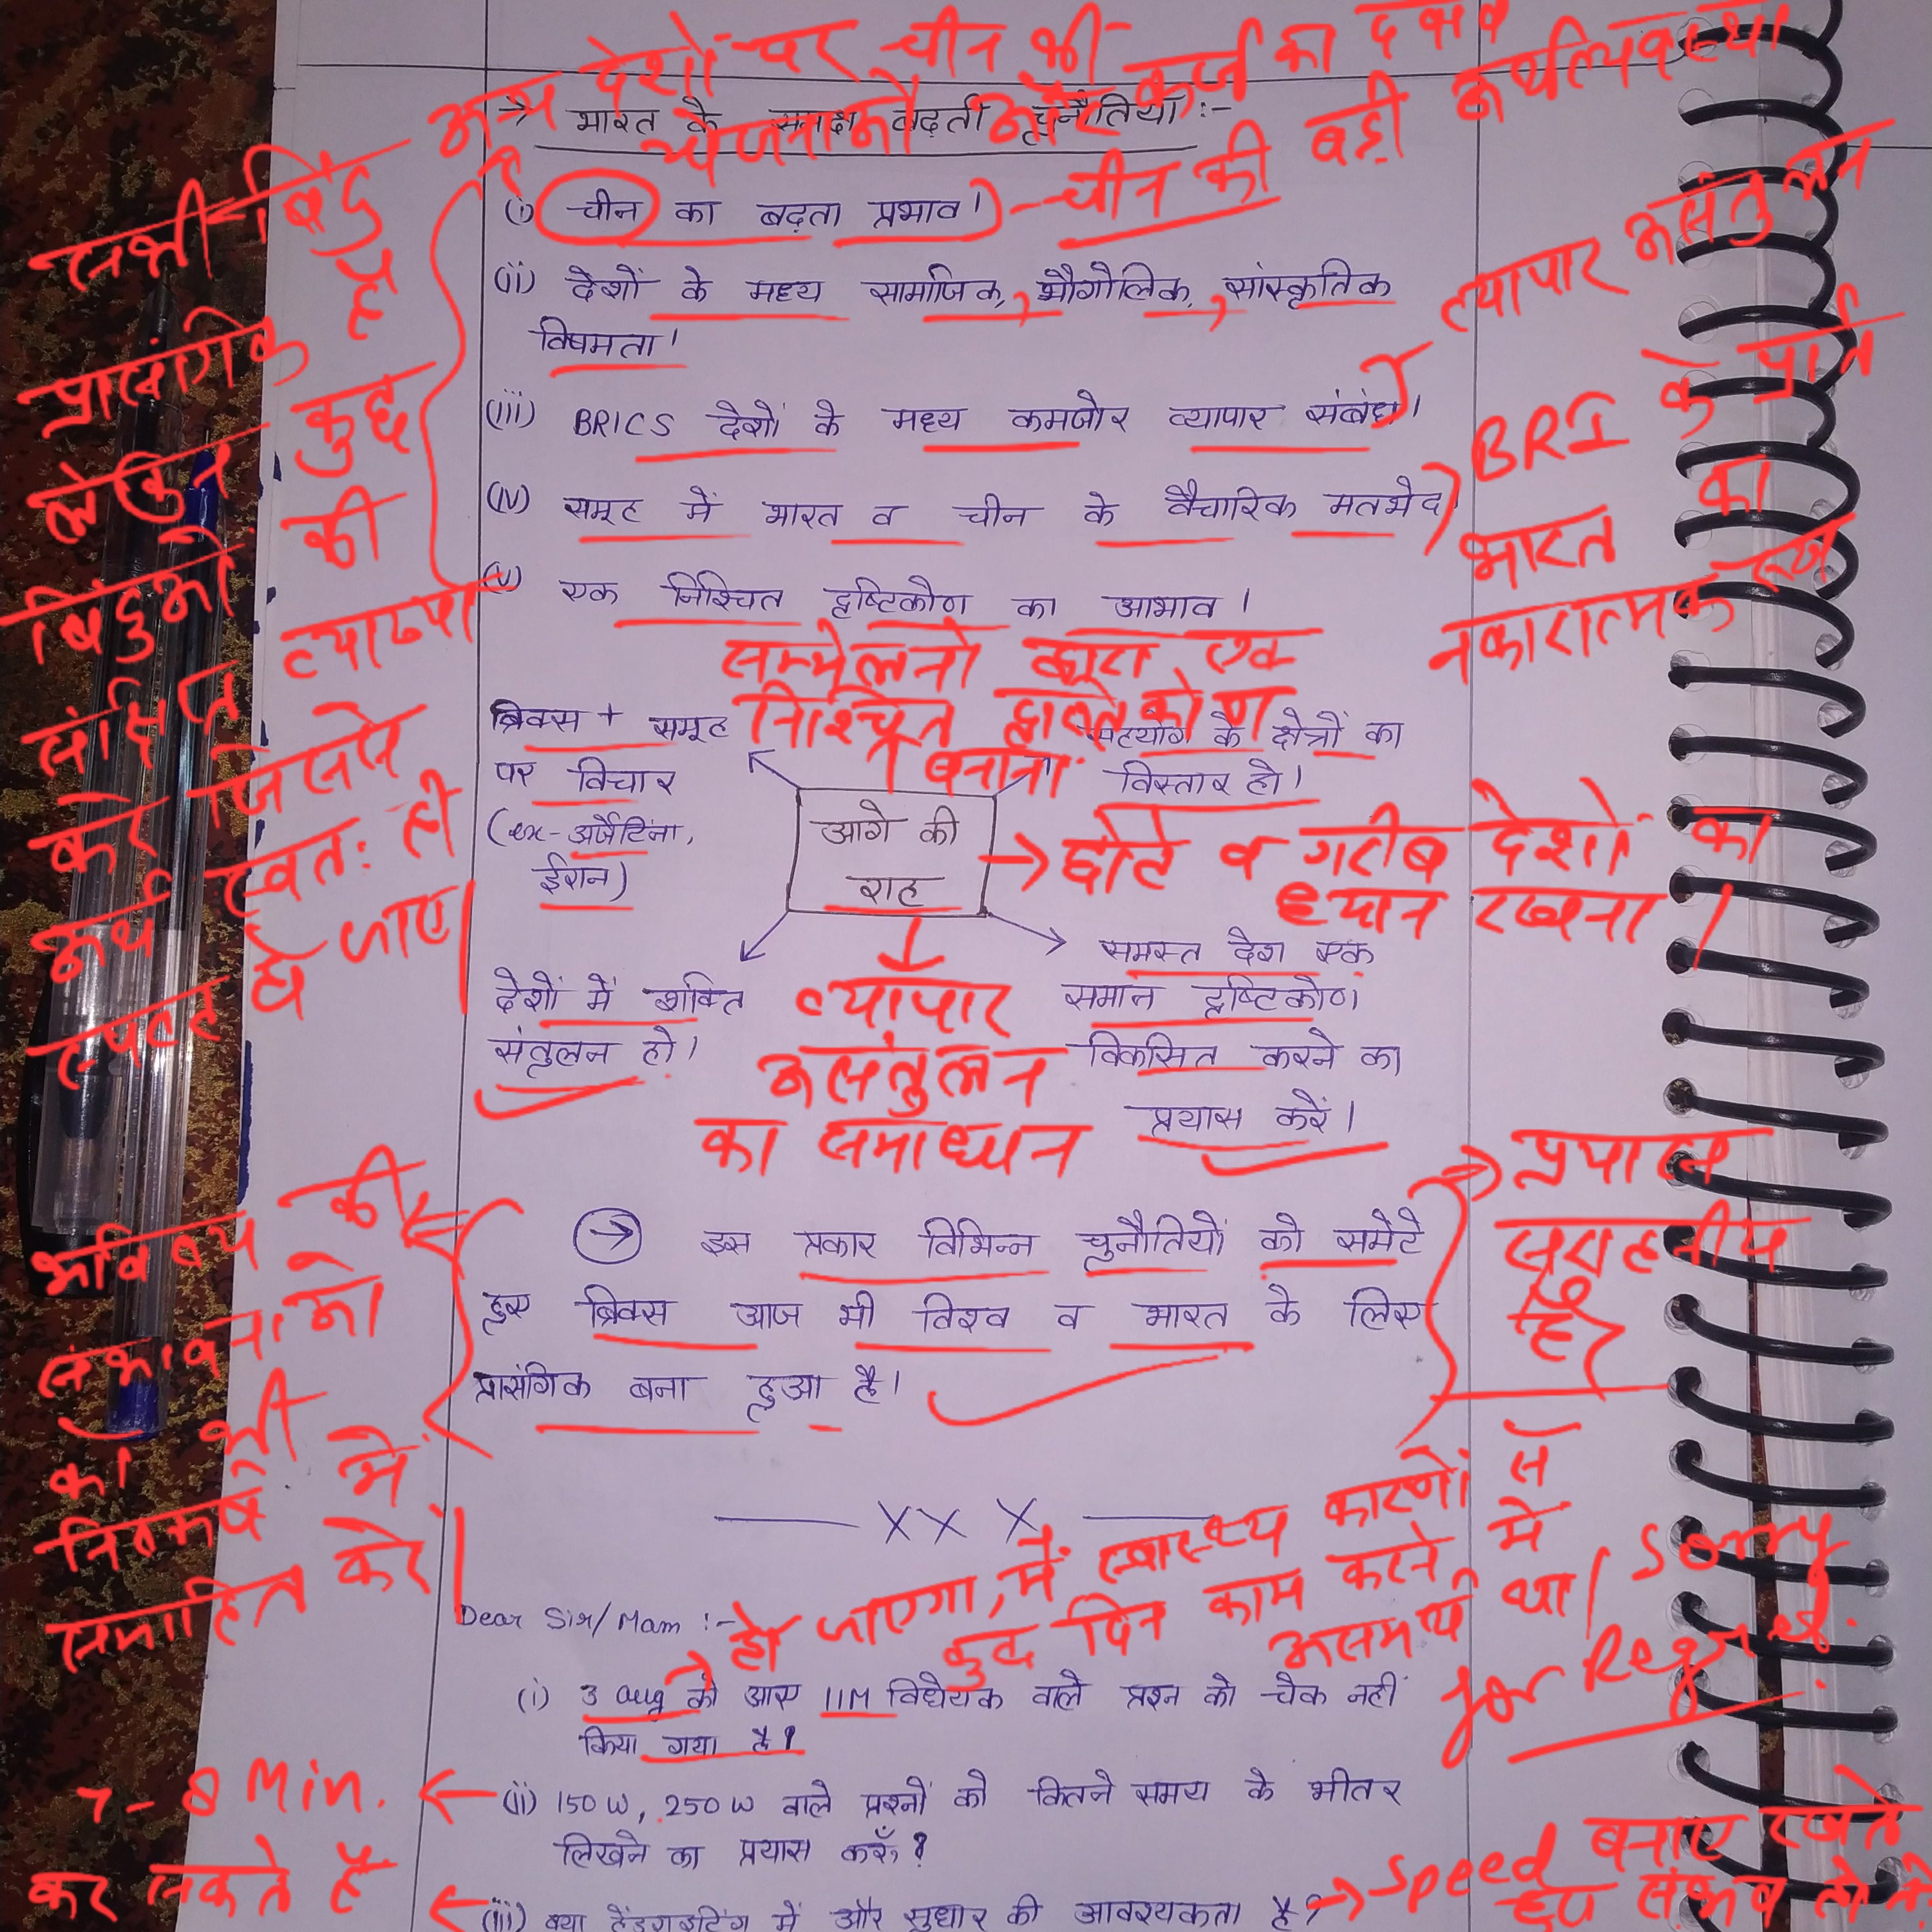 अन्य देशों पर चीन की
योजनाओं और कर्ज का दबाव
→ भारत के समक्ष बढ़ती चुनौतियाँ :-
(i) चीन का बढ़ता प्रभाव।
- चीन की बड़ी अर्थव्यवस्था
(ii) देशों के मध्य सामाजिक, भौगोलिक, सांस्कृतिक
विषमता।
व्यापार असंतुलन
(iii) BRICS देशों के मध्य कमजोर व्यापार संबंध।
(iv) समूह में भारत व चीन के वैचारिक मतभेद।
BRI के प्रति
भारत का
नकारात्मक रुख
(v) एक निश्चित दृष्टिकोण का आभाव।
सभी बिंदु
प्रासंगिक है
लेकिन कुछ
बिंदुओं की
संक्षिप्त व्याख्या
करें जिससे
अर्थ स्वतः ही
स्पष्ट हो जाए।
सम्मेलनों द्वारा एक
निश्चित दृष्टिकोण
बनाना
ब्रिक्स + समूह
पर विचार
(ex- अर्जेंटिना,
ईरान)
सहयोग के क्षेत्रों का
विस्तार हो।
आगे की
राह
→ छोटे व गरीब देशों का
ध्यान रखना।
देशों में शक्ति
संतुलन हो।
व्यापार
असंतुलन
का समाधान
समस्त देश एक
समान दृष्टिकोण
विकसित करने का
प्रयास करें।
→ इस प्रकार विभिन्न चुनौतियों को समेटे
हुए ब्रिक्स आज भी विश्व व भारत के लिए
प्रासंगिक बना हुआ है।
→ प्रयास
सराहनीय
है
भविष्य की
संभावनाओं
को भी
निष्कर्ष में
समाहित करें।
— XXX —
Dear Sir/Mam :-
हो जाएगा, मैं स्वास्थ्य कारणों से
कुछ दिन काम करने में
असमर्थ था। Sorry
for Regret.
(i) 3 Aug को आए IIM विधेयक वाले प्रश्न को चेक नहीं
किया गया है?
(ii) 150 W, 250 W वाले प्रश्नों को कितने समय के भीतर
लिखने का प्रयास करूँ?
7-8 Min.
(iii) क्या हैंडराइटिंग में और सुधार की आवश्यकता है?
कर सकते है
→ Speed बनाए रखते
हुए संभव हो तो